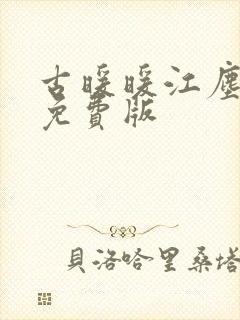 古暖暖江塵
免費版
貝洛哈里桑塔